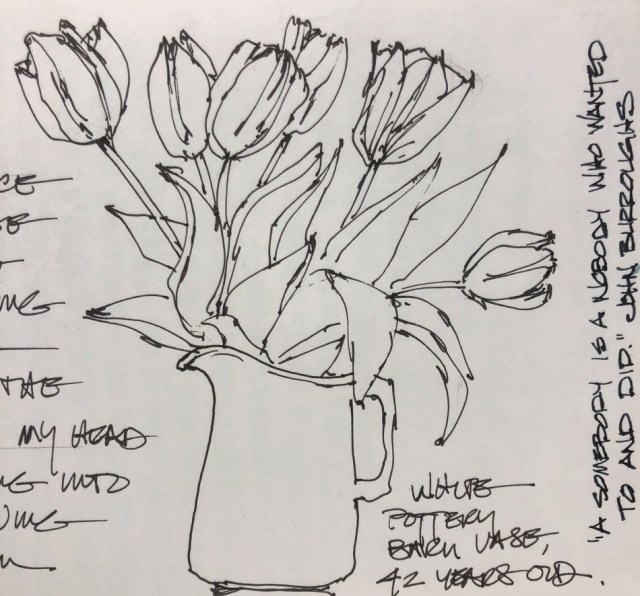 CE
THE
MY HEAD
INTO
WHITE
POTTERY
BARN VASE,
42 YEARS OLD.
"A SOMEBODY IS A NOBODY WHO WANTED
TO AND DID." JOHN BURROUGHS